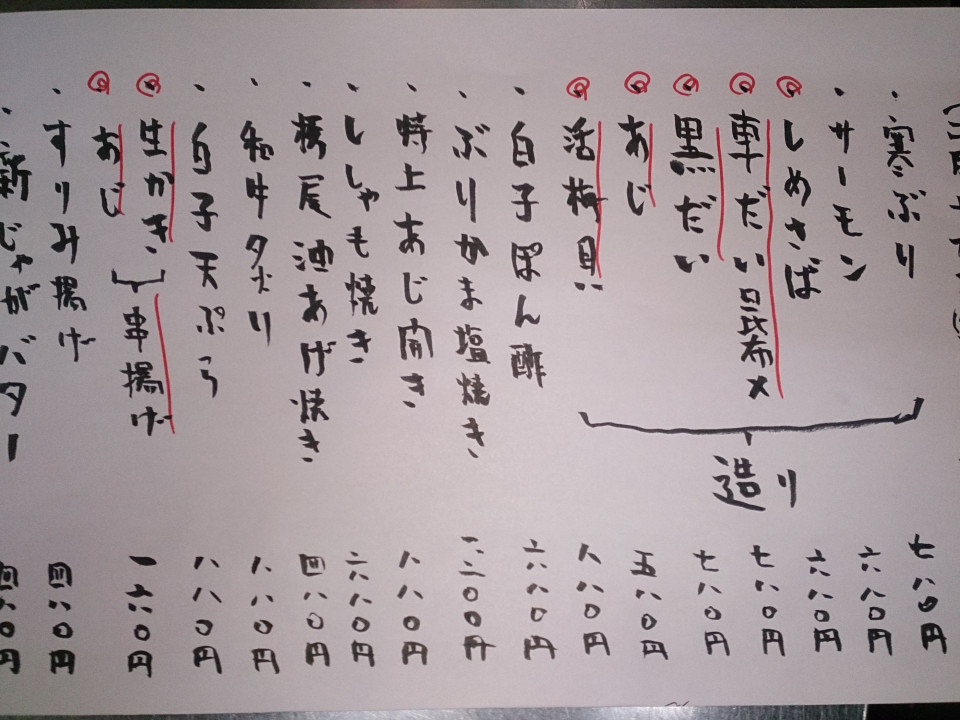 寒ぶり 七八〇円
サーモン 六八〇円
しめさば 六八〇円
車だい昆布〆 七八〇円
黒だい 七八〇円
あじ 五八〇円
活梅貝 八八〇円
造り
白子ぽん酢 六八〇円
ぶりかま塩焼き 一二〇〇円
特上あじ開き 八八〇円
ししゃも焼き 六八〇円
栃尾油あげ焼き 四八〇円
和牛タタキ 八八〇円
白子天ぷら 八八〇円
生かき
あじ
串揚げ 一六〇円
すりみ揚げ 四八〇円
新じゃがバター 四八〇円